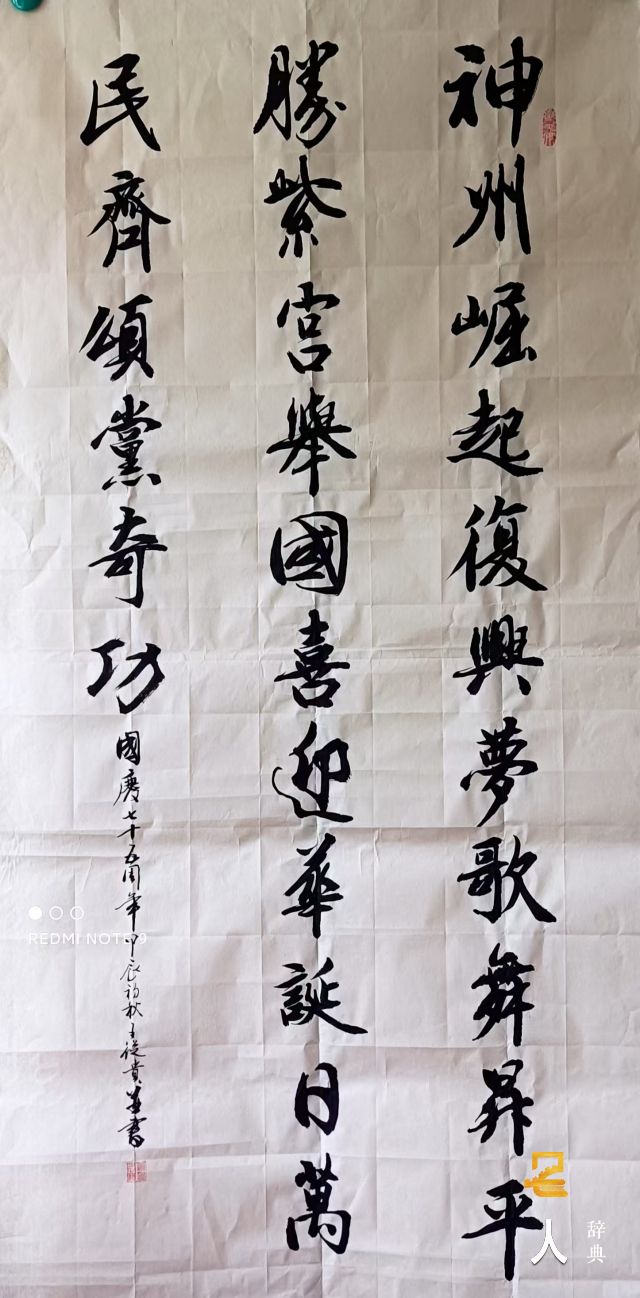 神州崛起復興夢歌舞昇平
勝紫宮舉國喜迎華誕日萬
民齊頌黨奇功
國慶七十五周年甲辰初秋王從貴並書
REDMI NOTE 9
人
辞典